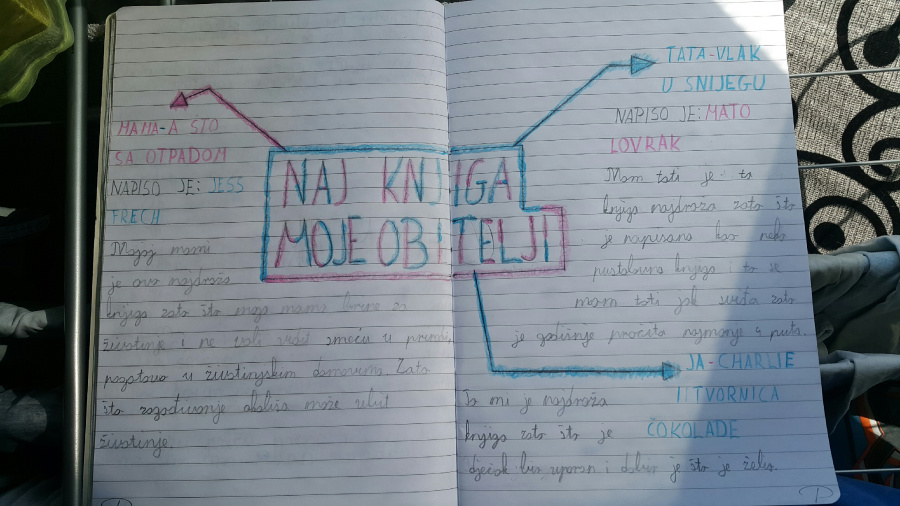 NAJ KNJIGA
MOJE OBITELJI
MAMA-A ŠTO
SA OTPADOM
NAPISO JE: JESS
FRECH
Mojoj mami
je ova najdraža
knjiga zato što moja mama brine za
životinje i ne voli vidit smeću u prirodi,
pogotovo u životinjskim domovima. Zato
što zagađivanje okoliša može ubit
životinje.
TATA-VLAK
U SNIJEGU
NAPISO JE: MATO
LOVRAK
Mom tati je ta
knjiga najdraža zato što
je napisana kao neka
pustolovna knjiga i to se
mom tati jak sviđa zato
je godišnje pročita najmanje 4 puta.
JA-CHARLIE
I TVORNICA
ČOKOLADE
To mi je najdraža
knjiga zato što je
dječak bio uporan i dobio je što je želio.